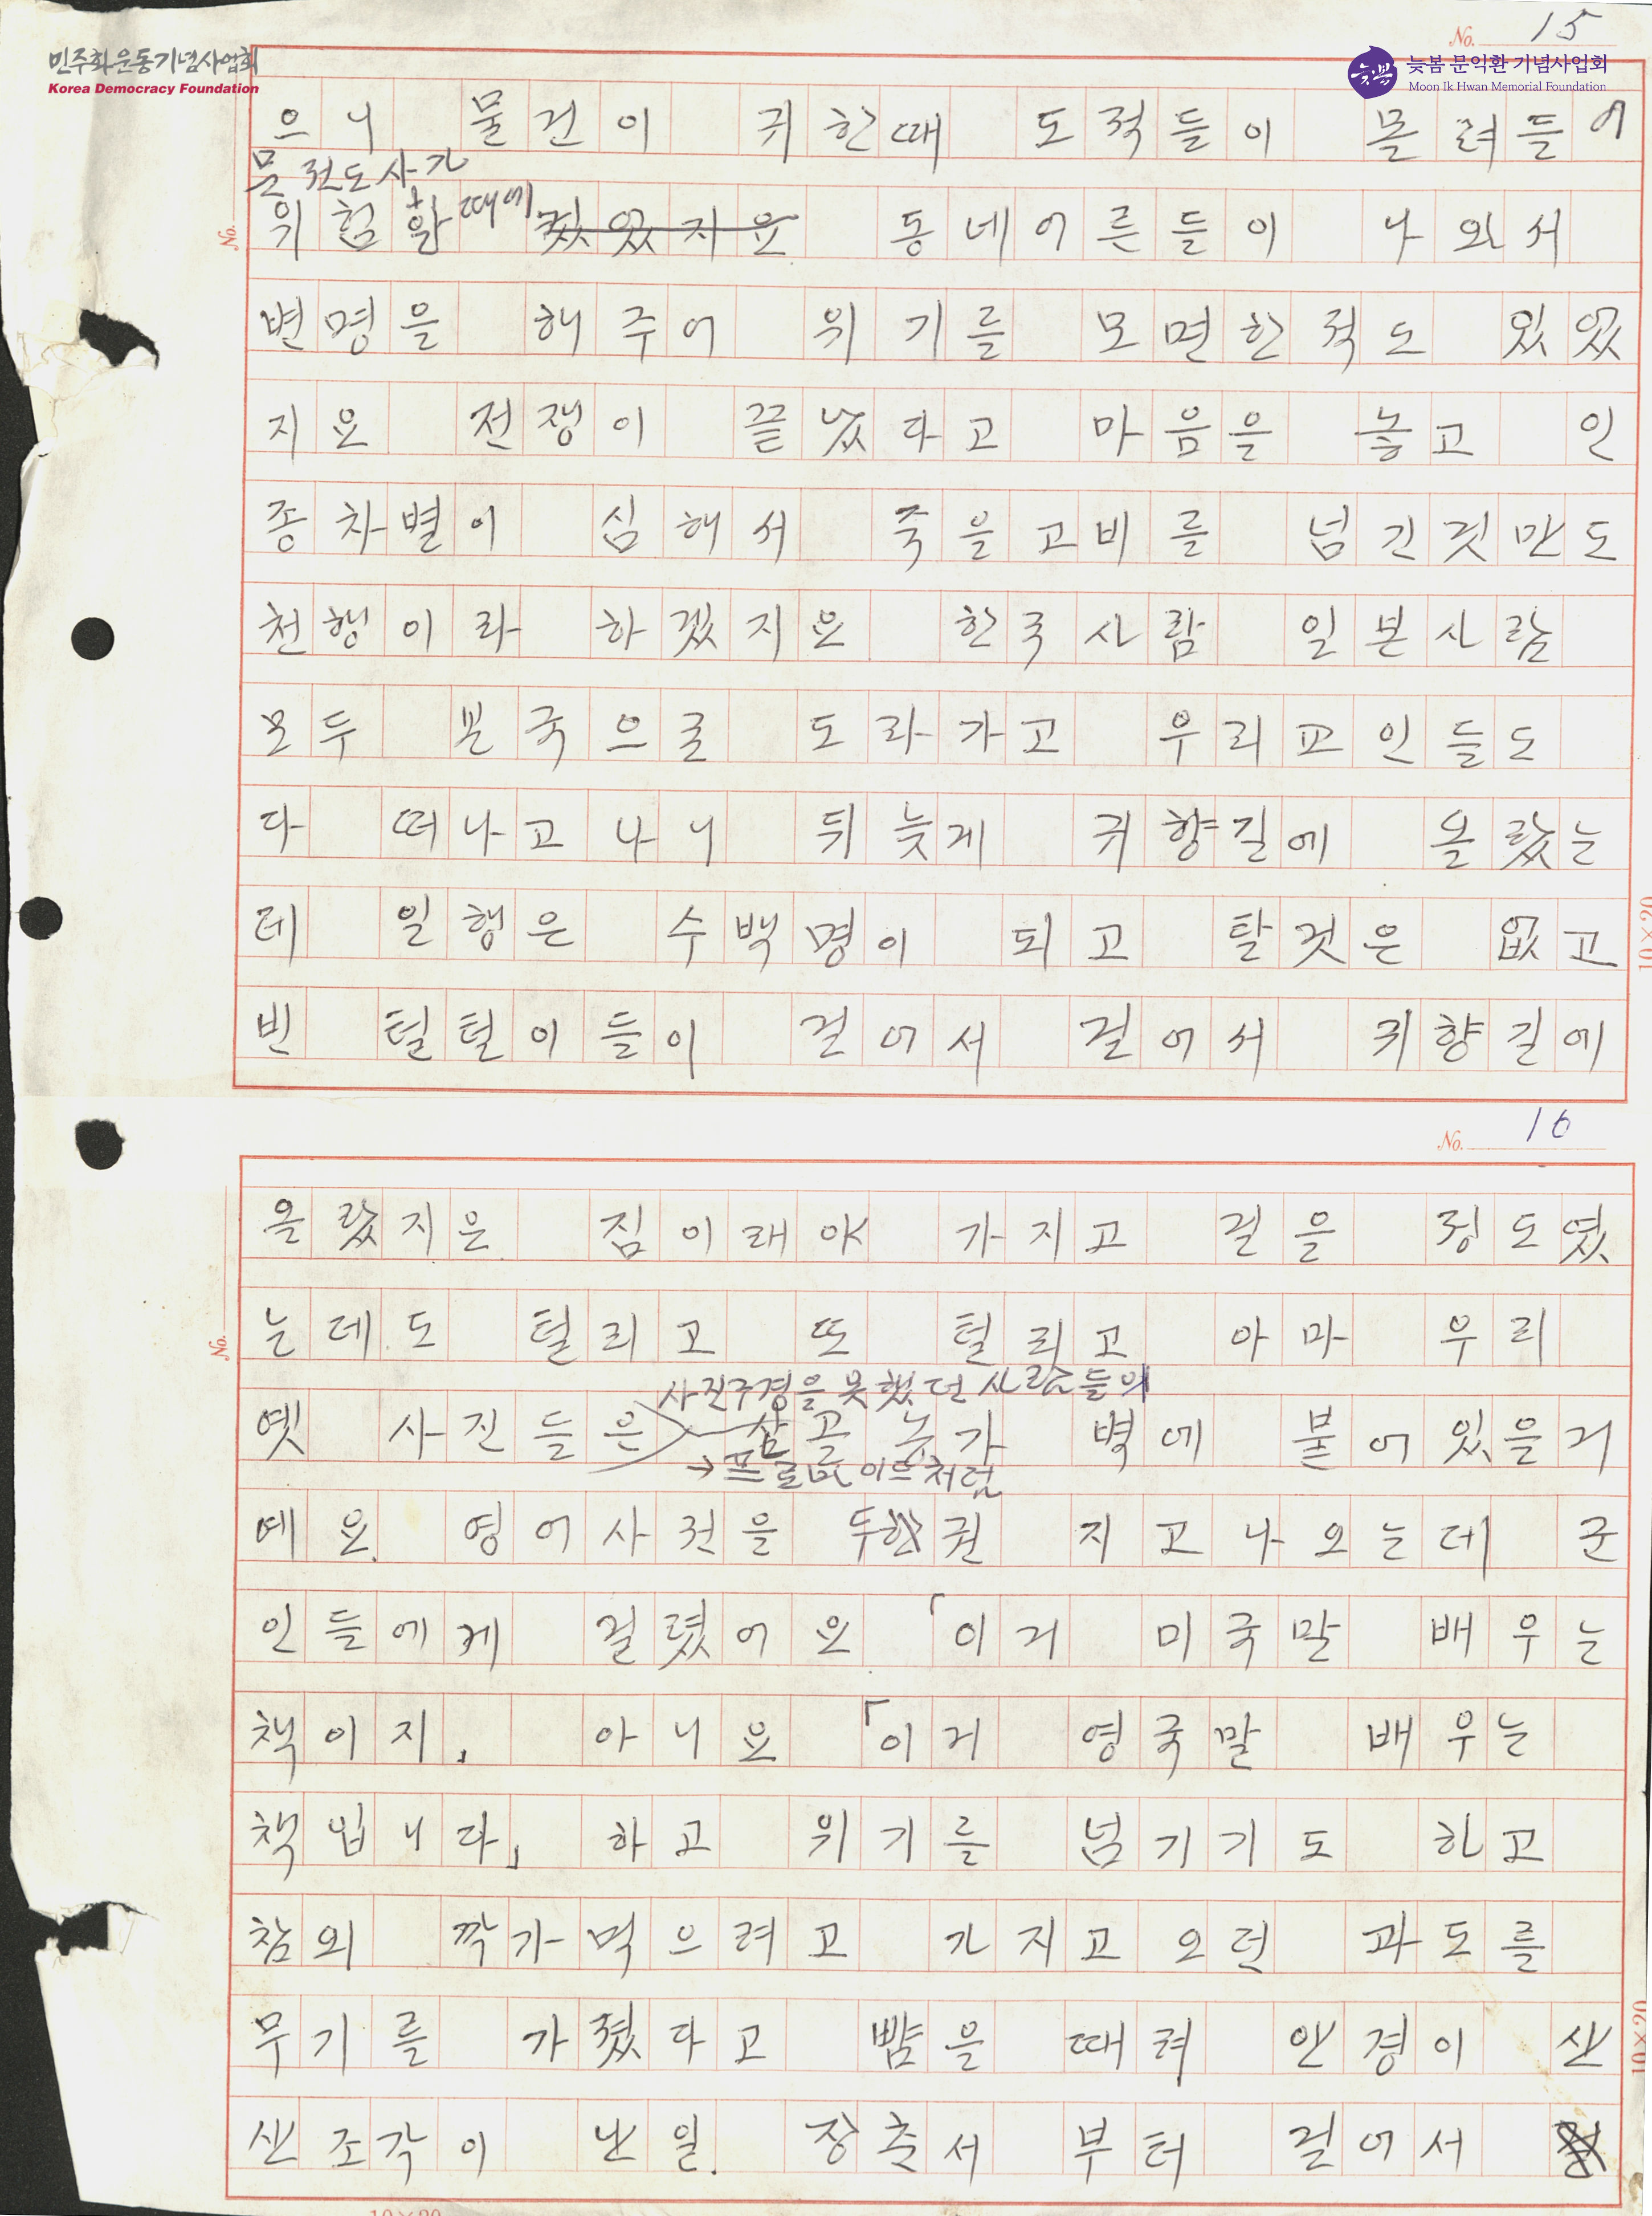 민주화운동기념사업회
Korea Democracy Foundation
No. 15
늦봄
늦봄 문익환 기념사업회
Moon Ik Hwan Memorial Foundation
으니 물건이 귀한때 도적들이 몰려들어
문전도사가
위험할 때에 겠었지요 동네어른들이 나와서
No.
변명을 해주어 위기를 모면한적도 있었
지요 전쟁이 끝났다고 마음을 놓고 인
종차별이 심해서 죽을고비를 넘긴것만도
천행이라 하겠지요 한국사람 일본사람
모두 본국으로 도라가고 우리교인들도
다 떠나고 나니 뒤늦게 귀향길에 올랐는
데 일행은 수백명이 되고 탈것은 없고
10×20
빈 털털이들이 걸어서 걸어서 귀향길에
No. 16
올랐지은 짐이래야 가지고 걸을 정도였
는데도 털리고 또 털리고 아마 우리
No.
사진구경을 못했던 사람들의
옛 사진들은 삼골 농가 벽에 붙어있을거
→프로마이드처럼
예요. 영어사전을 두한권 지고나오는데 군
인들에게 걸렸어요. 「이거 미국말 배우는
책이지」 아니요 「이거 영국말 배우는
책입니다」 하고 위기를 넘기기도 하고
참외 깍가먹으려고 가지고오던 과도를
무기를 가졌다고 뺨을 때려 안경이 산
10×20
산조각이 난일. 장춘서 부터 걸어서
10×20